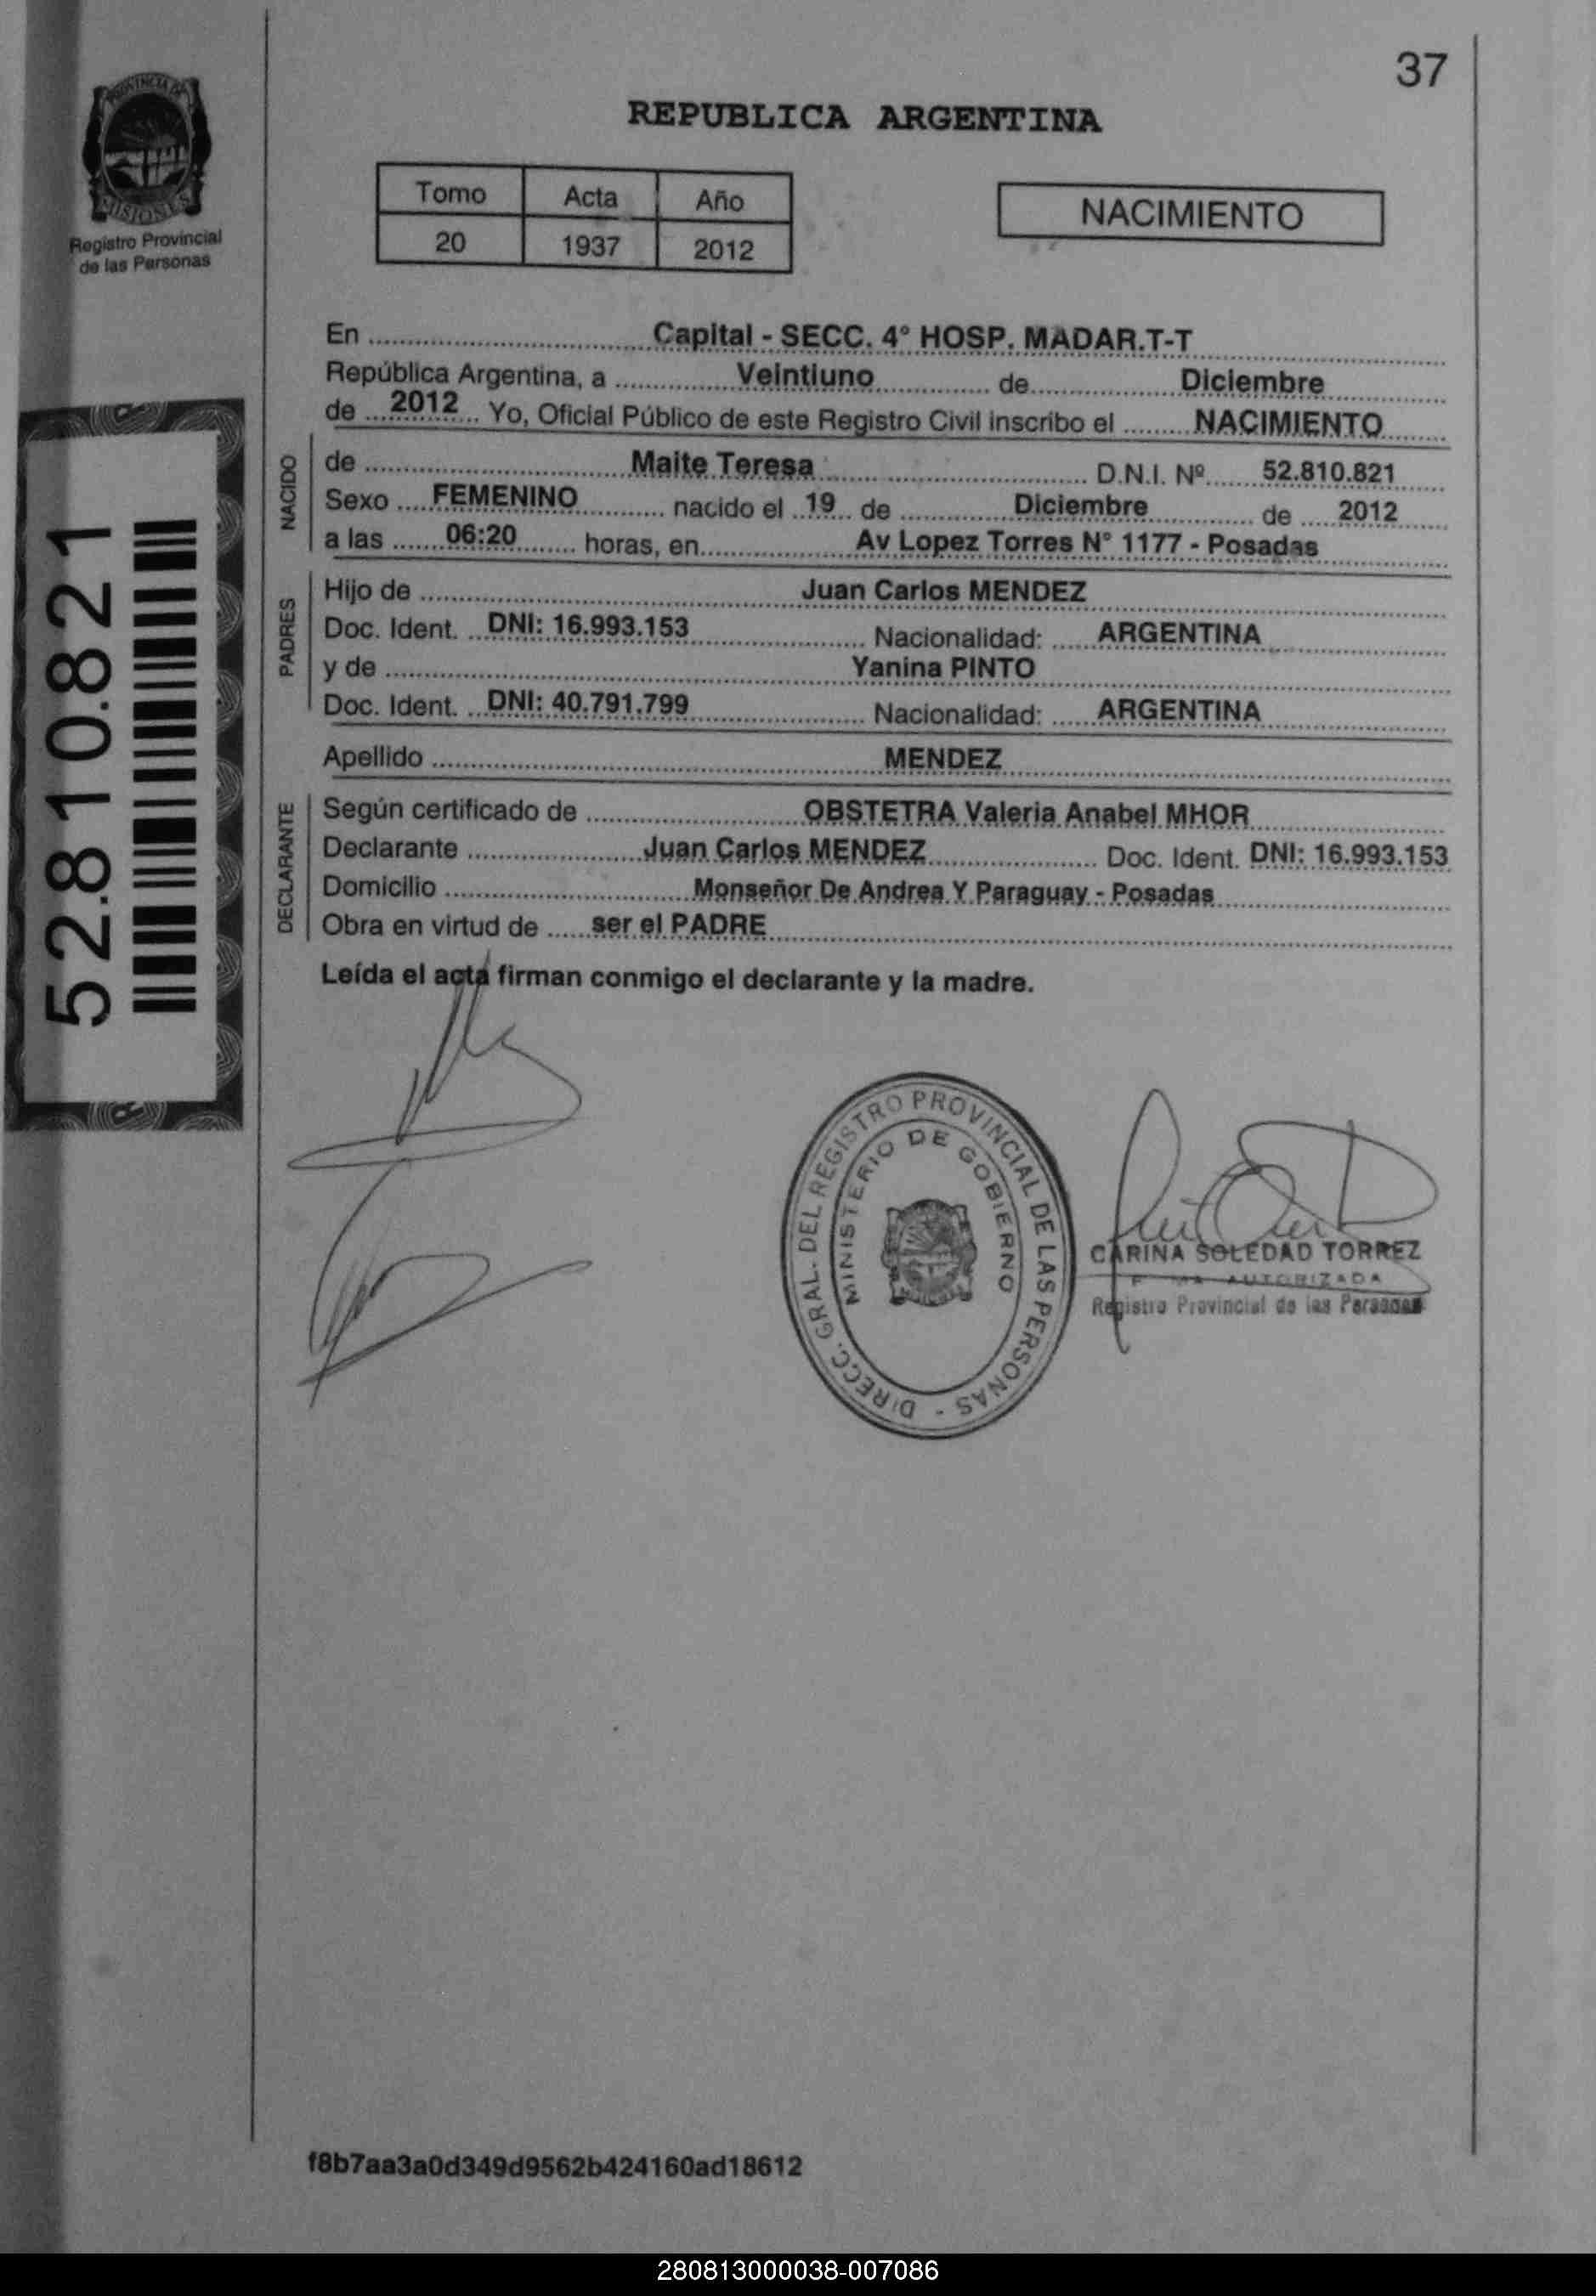 37
PROVINCIA DE
MISIONES
Registro Provincial
de las Personas
REPUBLICA ARGENTINA
Tomo Acta Año
20 1937 2012
NACIMIENTO
En ..... Capital - SECC. 4° HOSP. MADAR.T-T
República Argentina, a ..... Veintiuno ..... de ..... Diciembre
de ... 2012 ... Yo, Oficial Público de este Registro Civil inscribo el ..... NACIMIENTO
NACIDO
de ..... Maite Teresa ..... D.N.I. Nº ..... 52.810.821
Sexo ..... FEMENINO ..... nacido el .. 19 .. de ..... Diciembre ..... de ..... 2012
a las ..... 06:20 ..... horas, en ..... Av Lopez Torres N° 1177 - Posadas
PADRES
Hijo de ..... Juan Carlos MENDEZ
Doc. Ident. ... DNI: 16.993.153 ..... Nacionalidad: ..... ARGENTINA
y de ..... Yanina PINTO
Doc. Ident. ... DNI: 40.791.799 ..... Nacionalidad: ..... ARGENTINA
Apellido ..... MENDEZ
DECLARANTE
Según certificado de ..... OBSTETRA Valeria Anabel MHOR
Declarante ..... Juan Carlos MENDEZ ..... Doc. Ident. DNI: 16.993.153
Domicilio ..... Monseñor De Andrea Y Paraguay - Posadas
Obra en virtud de ..... ser el PADRE
Leída el acta firman conmigo el declarante y la madre.
52.810.821
DIRECC. GRAL. DEL REGISTRO PROVINCIAL DE LAS PERSONAS -
MINISTERIO DE GOBIERNO
CARINA SOLEDAD TORREZ
AUTORIZADA
Registro Provincial de las Personas
f8b7aa3a0d349d9562b424160ad18612
280813000038-007086